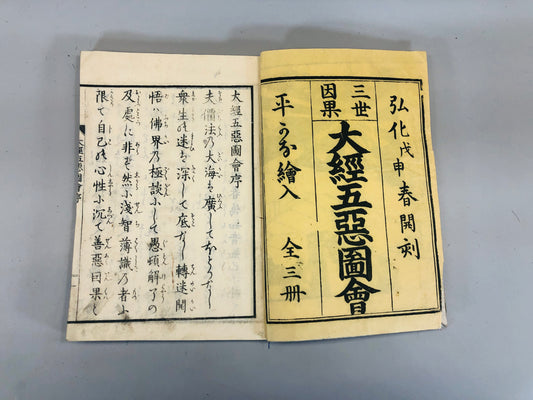 弘化戊申春開刻
三世
因果
大經五惡圖會
平かな繪入 全三册
大經五惡圖會序
夫佛法の大海は廣してほとりなし
衆生の迷は深して底なし轉迷開
悟ハ佛界乃極談にして愚頓解了の
及處に非ず然に淺智薄識乃者ふ
限て自己の心性に沉て善惡因果と
大經五惡圖會序